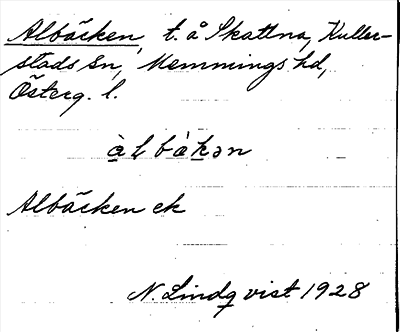 Albäcken, t. å Skattna, Kuller-
stads sn, Memmings hd,
Österg. l.
àlbàkən
Albäcken ek
N. Lindqvist 1928